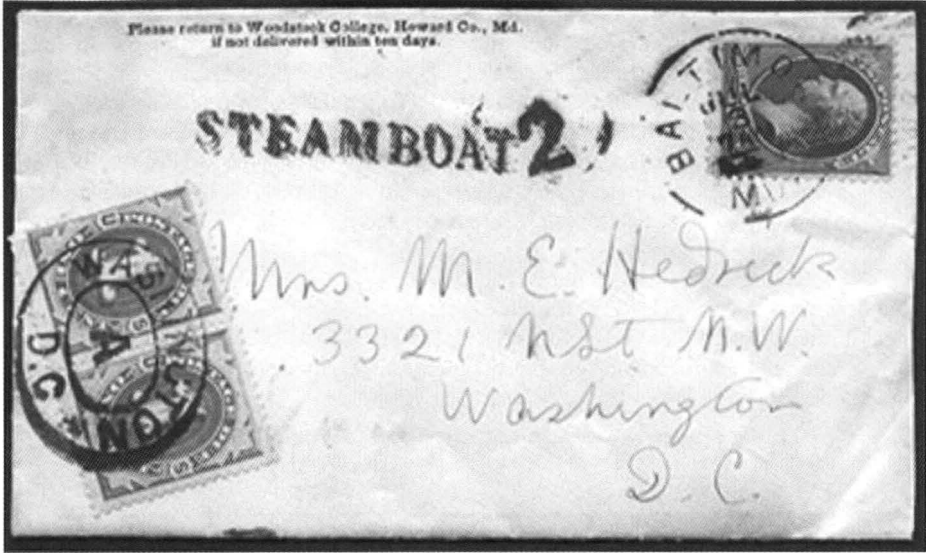 Please return to Woodstock College, Howard Co., Md.
if not delivered within ten days.
STEAMBOAT 2
BALTIMO
JUL
MD
Mrs. M. E. Hedrick
3321 N St N.W.
Washington
D. C.
WASHINGTON
D.C
A